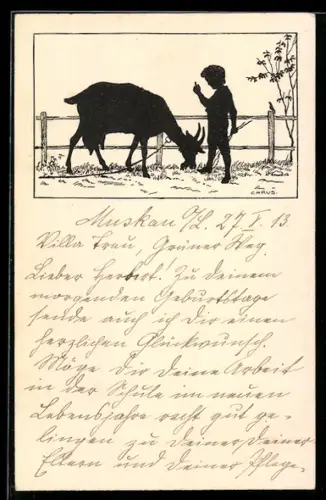 CARUS.
Muskau O/L. 27.I.13.
Villa Trau, Grüner Weg.
Lieber Herbert! Zu deinem
morgenden Geburtstage
sende auch ich Dir einen
herzlichen Glückwunsch.
Möge Dir Deine Arbeit
in der Schule im neuen
Lebensjahre recht gut ge-
lingen zu Deiner, Deiner
Eltern und Deiner Pflege-